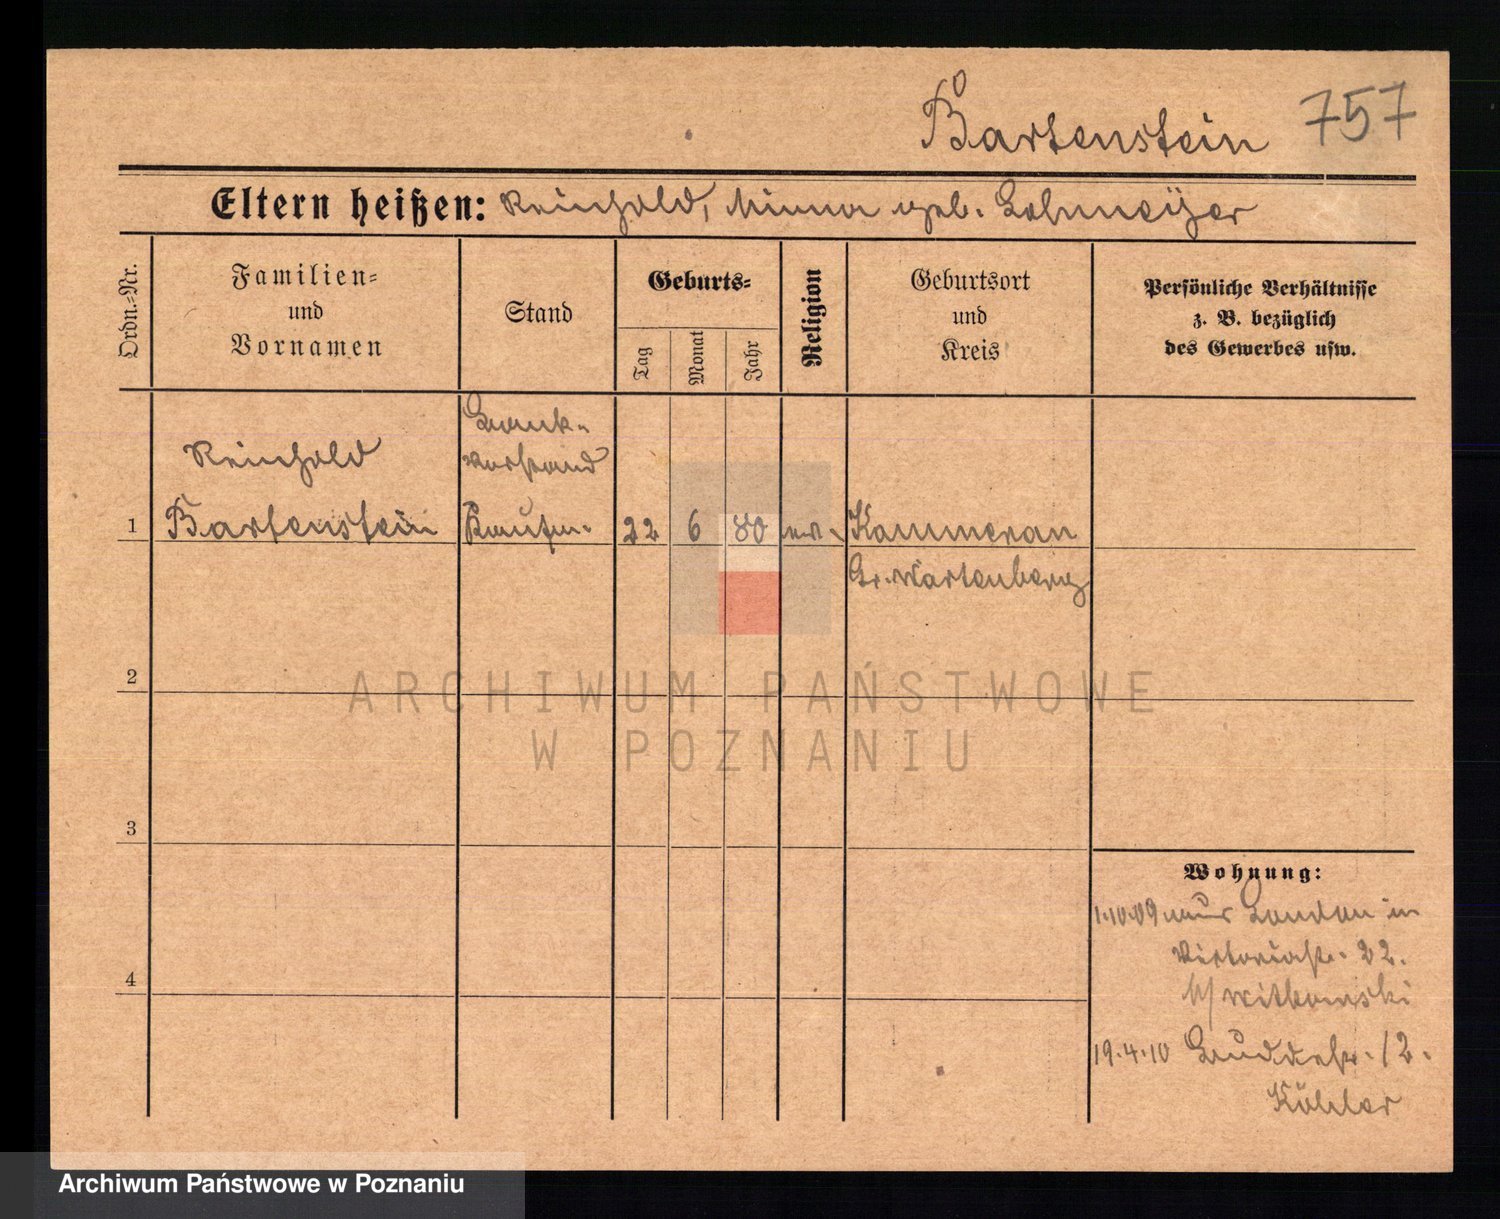 Bartenstein 757
Eltern heißen: Reinhold, Minna geb. Lohmeyer
Ordn.-Nr.
Familien-
und
Vornamen
Stand
Geburts-
Tag
Monat
Jahr
Religion
Geburtsort
und
Kreis
Persönliche Verhältnisse
z. B. bezüglich
des Gewerbes usw.
Bank-
vorstand
Reinhold
1 Bartenstein Kaufm. 22 6 80 ev. Kammerau
Gr. Wartenberg
2
3
4
Wohnung:
1.10.09 aus London in
Viktoriastr. 22.
b/ Witkowski
19.4.10 Buddestr. 12.
Köhler
ARCHIWUM PAŃSTWOWE
W POZNANIU
Archiwum Państwowe w Poznaniu